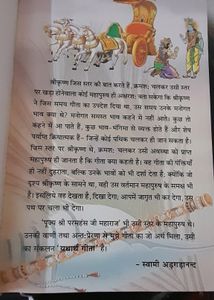 श्रीकृष्ण जिस स्तर की बात करते हैं, क्रमशः चलकर उसी स्तर
पर खड़ा होनेवाला कोई महापुरुष ही अक्षरशः बता सकेगा कि श्रीकृष्ण
ने जिस समय गीता का उपदेश दिया था, उस समय उनके मनोगत
भाव क्या थे? मनोगत समस्त भाव कहने में नहीं आते। कुछ तो
कहने में आ पाते हैं, कुछ भाव-भंगिमा से व्यक्त होते हैं और शेष
पर्याप्त क्रियात्मक हैं– जिन्हें कोई पथिक चलकर ही जान सकता है।
जिस स्तर पर श्रीकृष्ण थे, क्रमशः चलकर उसी अवस्था को प्राप्त
महापुरुष ही जानता है कि गीता क्या कहती है। वह गीता की पंक्तियाँ
ही नहीं दुहराता, बल्कि उनके भावों को भी दर्शा देता है; क्योंकि जो
दृश्य श्रीकृष्ण के सामने था, वही उस वर्तमान महापुरुष के समक्ष भी
है। इसलिये वह देखता है, दिखा देगा; आपमें जागृत भी कर देगा, उस
पथ पर चला भी देगा।
'पूज्य श्री परमहंस जी महाराज' भी उसी स्तर के महापुरुष थे।
उनकी वाणी तथा अन्तःप्रेरणा से मुझे गीता का जो अर्थ मिला, उसी
का संकलन 'यथार्थ गीता' है।
– स्वामी अड़गड़ानन्द